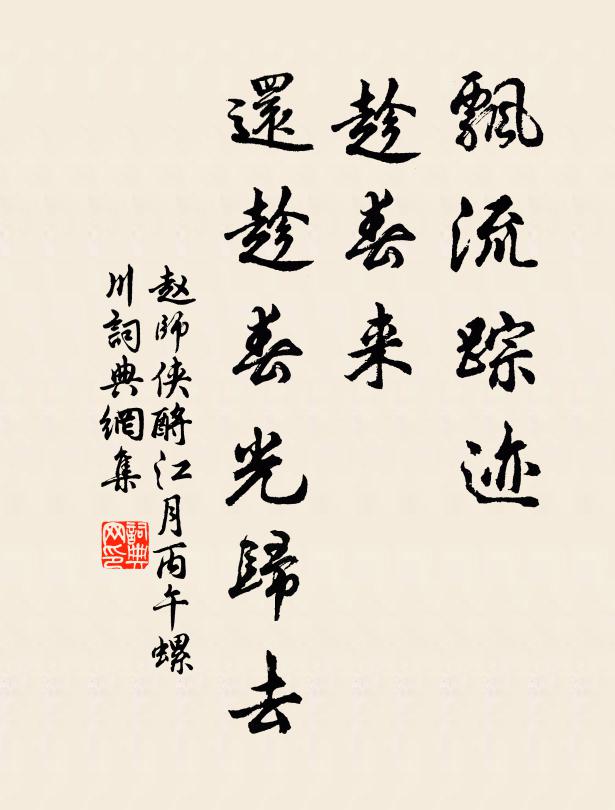 飄流踪迹
趁春来
還趁春光歸去
赵師侠酹江月丙午螺
川詞典網集
詞典网印